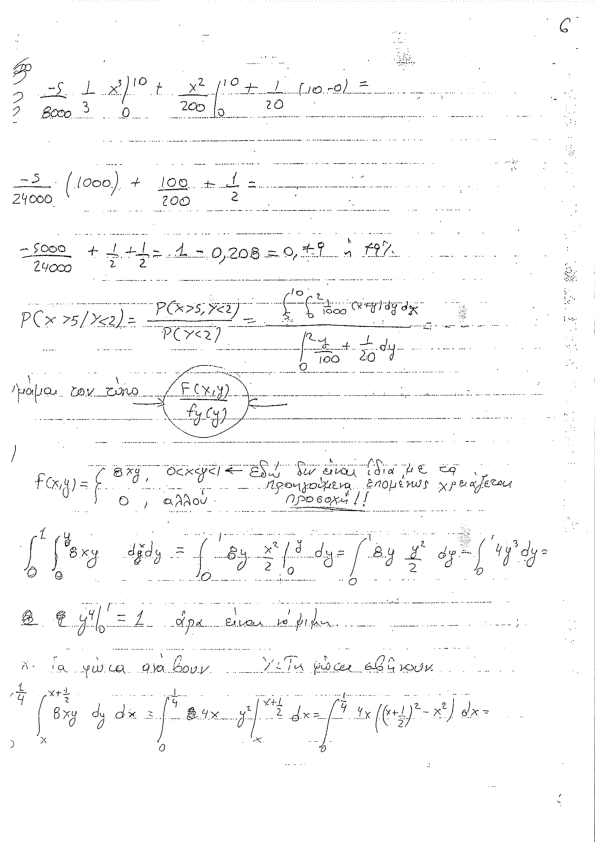 6
-5/8000 1/3 x³|₀¹⁰ + x²/200|₀¹⁰ + 1/20 (10-0) =
-5/24000 (1000) + 100/200 + 1/2 =
-5000/24000 + 1/2 + 1/2 = 1 - 0,208 = 0,79 ή 79%
P(X>5/Y<2) = P(X>5, Y<2)/P(Y<2) = ∫₅¹⁰ ∫₀² 1/1000 (x+y) dy dx / ∫₀² y/100 + 1/20 dy
τον τύπο → F(x,y)/fy(y) ←
f(x,y) = { 8xy, 0<x<y<1 ← Εδώ δεν είναι ίδια με τα
προηγούμενα επομένως χρειάζεται
0, αλλού προσοχή!!
∫₀¹ ∫₀ʸ 8xy dx dy = ∫₀¹ 8y x²/2|₀ʸ dy = ∫₀¹ 8y y²/2 dy = ∫₀¹ 4y³ dy =
y⁴|₀¹ = 1 άρα είναι νόμιμη.
X: Τα φώτα ανάβουν Y: Τα φώτα σβήνουν
1/4 ∫ₓ^(x+1/2) 8xy dy dx = ∫₀^(1/4) 4x y²|ₓ^(x+1/2) dx = ∫₀^(1/4) 4x((x+1/2)² - x²) dx =